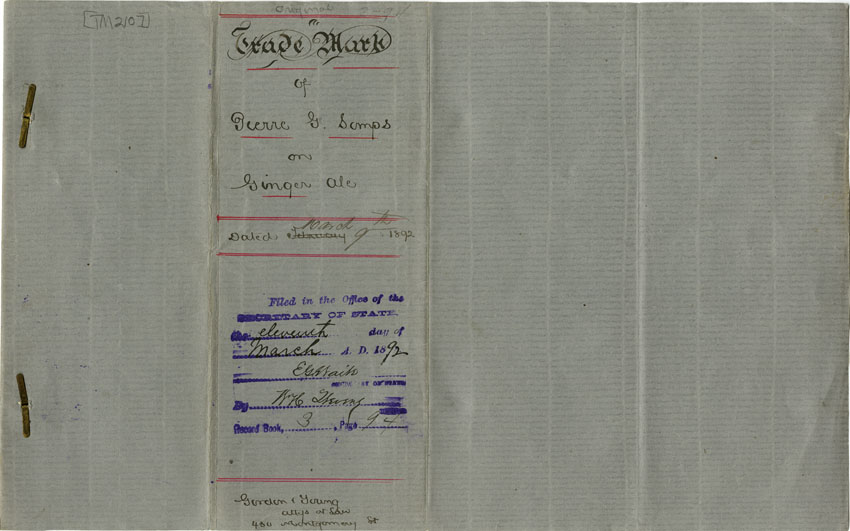 [TM2107]
Original
Trade Mark
of
Pierre G. Somps
on
Ginger Ale
Dated February March 9th 1892
Filed in the Office of the
SECRETARY OF STATE
the eleventh day of
March A. D. 1892
E G Waite
SECRETARY OF STATE
By W H
Record Book, 3, Page 94
Gordon & Young
attys at Law
430 Montgomery St